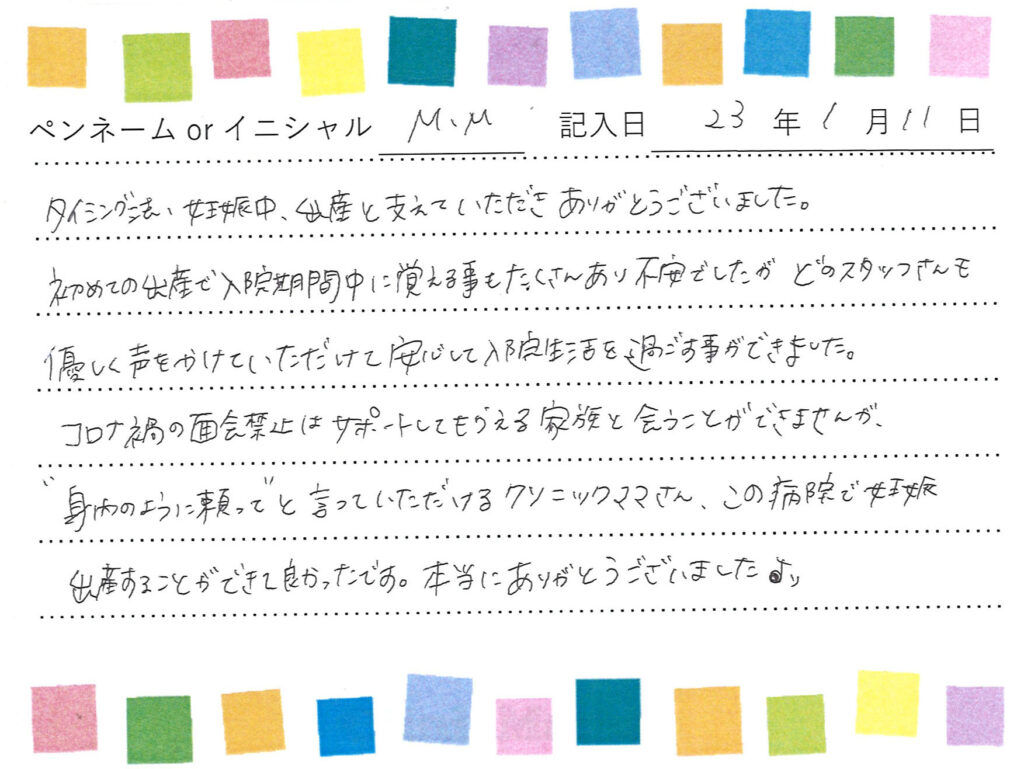 ペンネーム or イニシャル M、M 記入日 23 年 1 月 11 日
タイミング法、妊娠中、出産と支えていただきありがとうございました。
初めての出産で入院期間中に覚える事もたくさんあり不安でしたが どのスタッフさんも
優しく声をかけていただけて安心して入院生活を過ごす事ができました。
コロナ禍の面会禁止はサポートしてもらえる家族と会うことができませんが、
“身内のように頼って”と言っていただけるクリニックママさん、この病院で妊娠
出産することができて良かったです。本当にありがとうございました